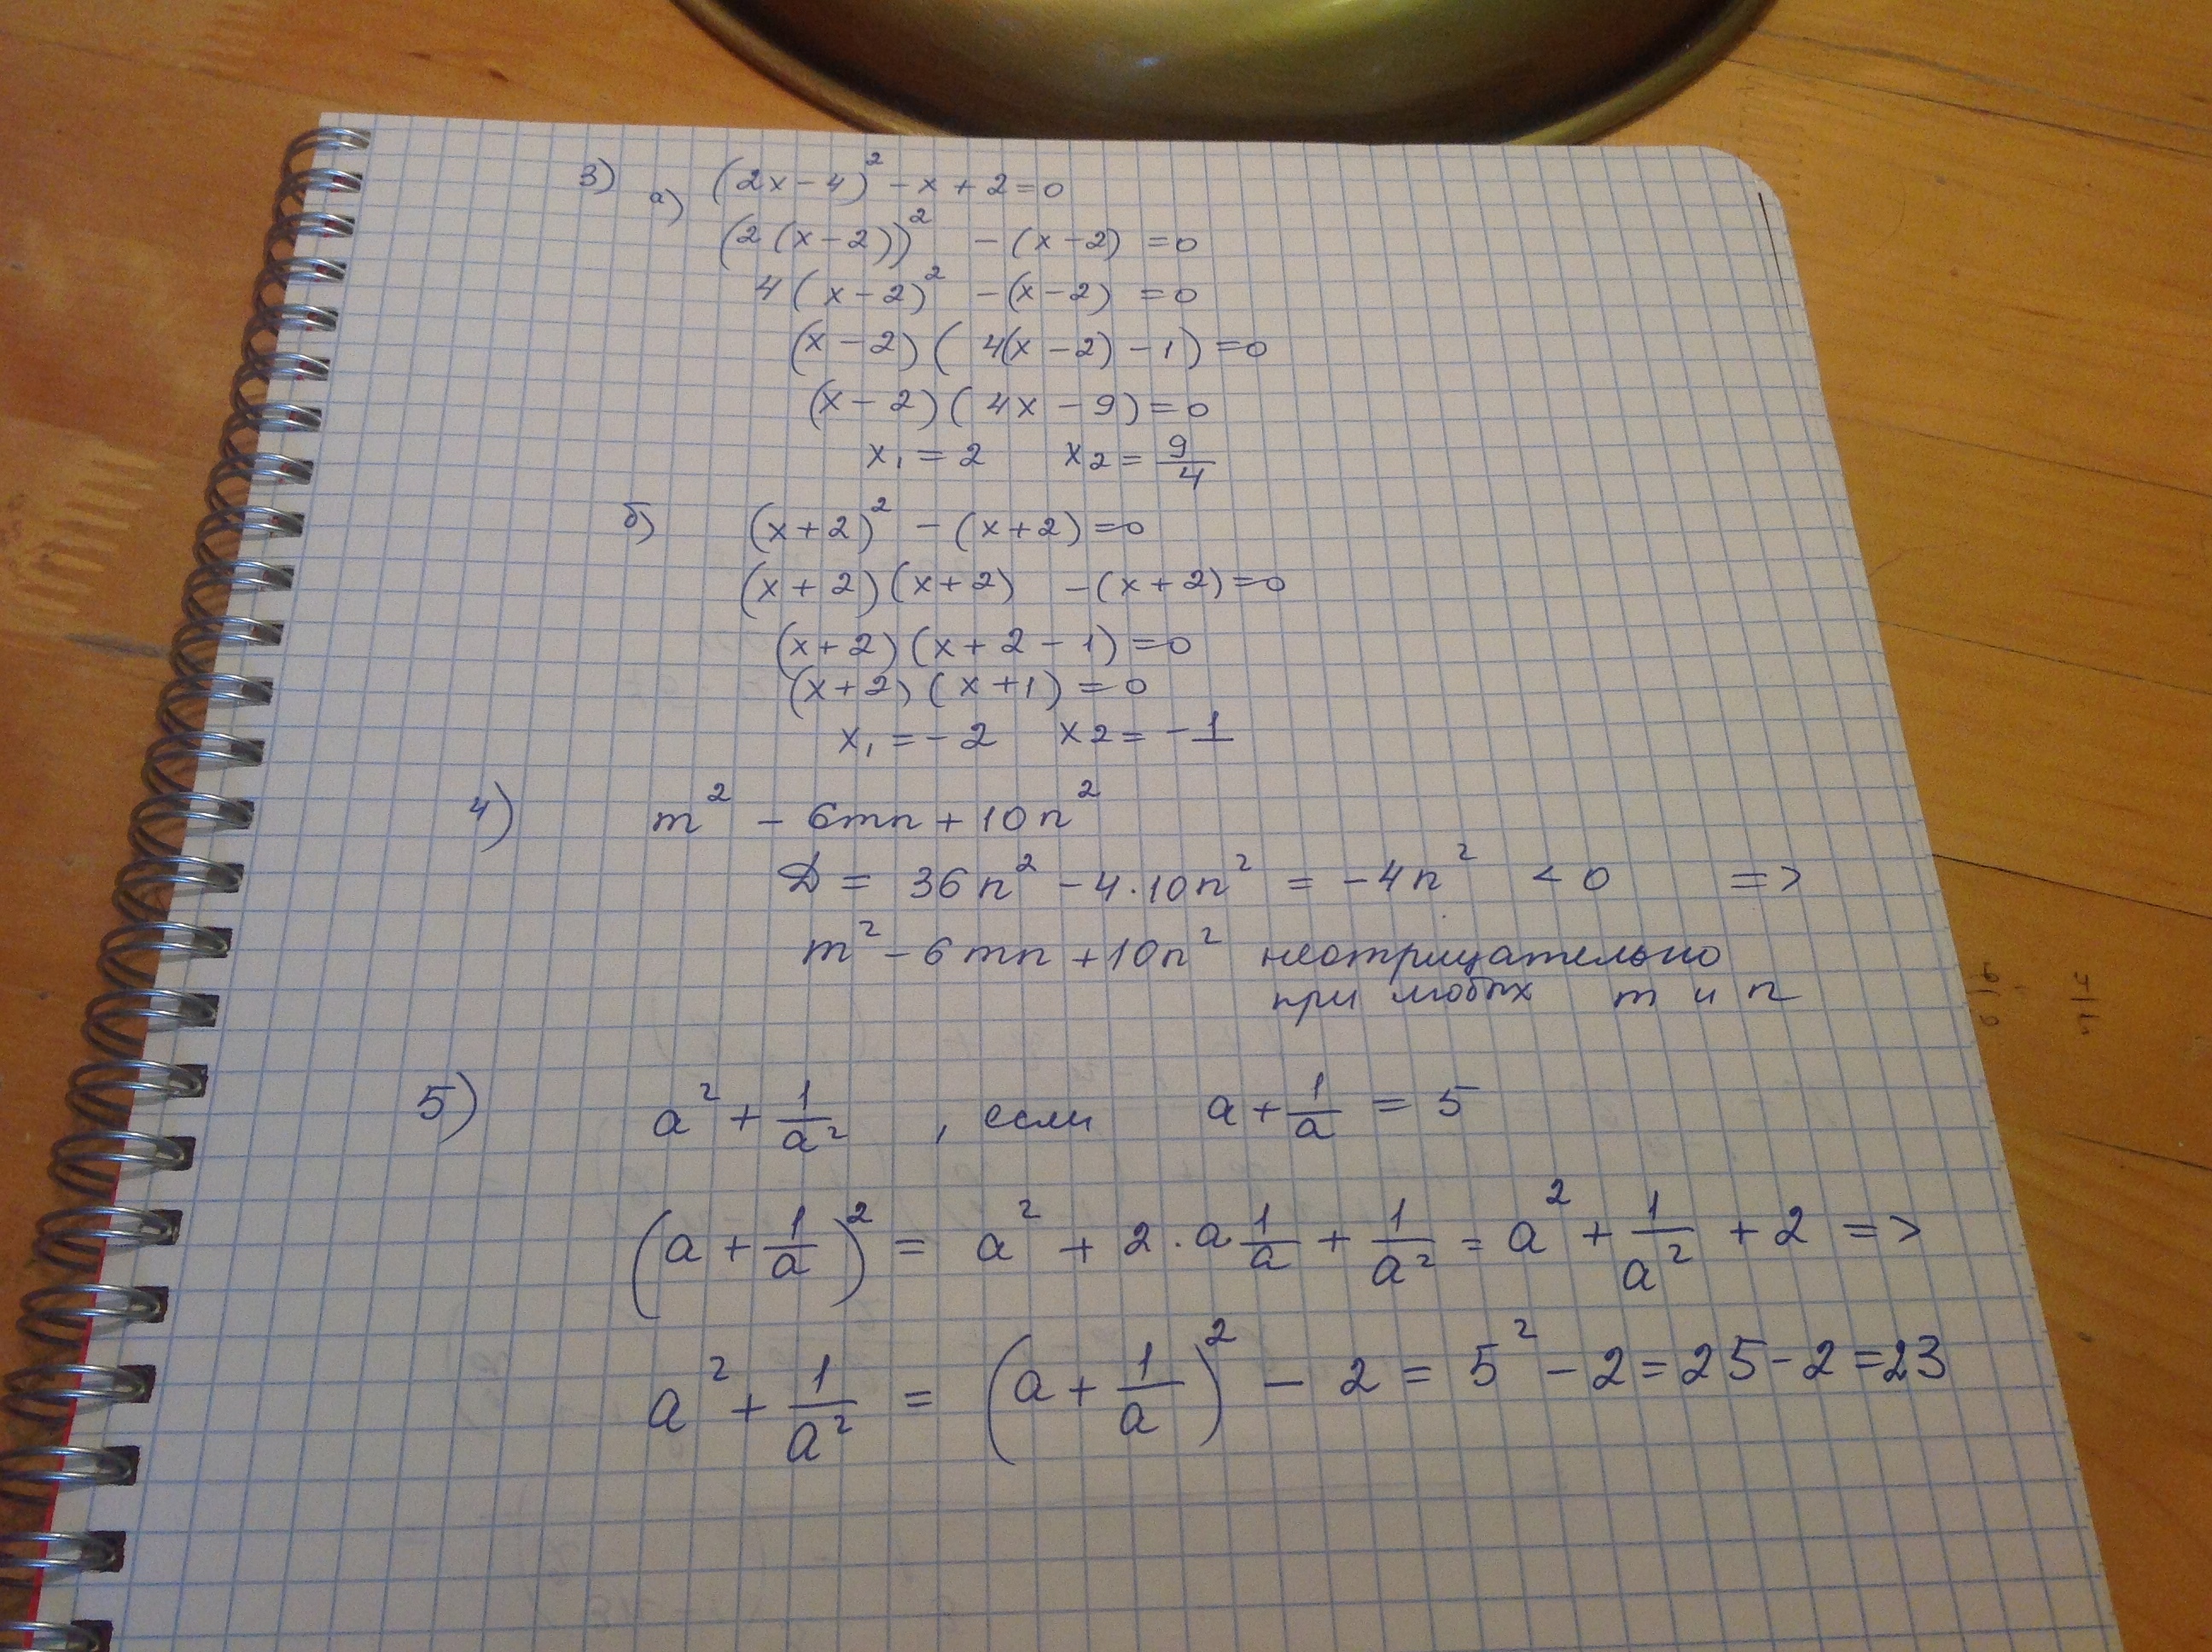 3) а) (2x-4)² - x + 2 = 0
(2(x-2))² - (x-2) = 0
4(x-2)² - (x-2) = 0
(x-2)(4(x-2)-1) = 0
(x-2)(4x-9) = 0
x₁ = 2 x₂ = 9/4
б) (x+2)² - (x+2) = 0
(x+2)(x+2) - (x+2) = 0
(x+2)(x+2-1) = 0
(x+2)(x+1) = 0
x₁ = -2 x2 = -1
4) m² - 6mn + 10n²
D = 36n² - 4·10n² = -4n² < 0 =>
m² - 6mn + 10n² неотрицательно
при любых m и n
5) a² + 1/a² , если a + 1/a = 5
(a + 1/a)² = a² + 2·a 1/a + 1/a² = a² + 1/a² + 2 =>
a² + 1/a² = (a + 1/a)² - 2 = 5² - 2 = 25 - 2 = 23